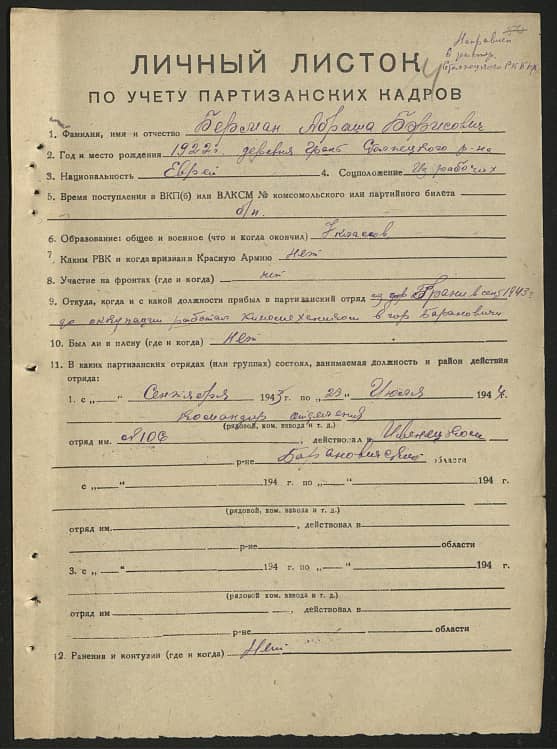 Направлен
в распор.
Столпецкого РККА
ЛИЧНЫЙ ЛИСТОК
ПО УЧЕТУ ПАРТИЗАНСКИХ КАДРОВ
1. Фамилия, имя и отчество Берман Абраша Борисович
2. Год и место рождения 1922 г. деревня Столпецкого р-на
3. Национальность Еврей 4. Соцположение Из рабочих
5. Время поступления в ВКП(б) или ВЛКСМ № комсомольского или партийного билета
б/п.
6. Образование: общее и военное (что и когда окончил) 7 классов
7. Каким РВК и когда призван в Красную Армию Нет
8. Участие на фронтах (где и когда) нет
9. Откуда, когда и с какой должности прибыл в партизанский отряд из дер. в сент. 1943 г.
до оккупации работал киномехаником в гор. Барановичи
10. Был ли в плену (где и когда) Нет
11. В каких партизанских отрядах (или группах) состоял, занимаемая должность и район действия
отряда:
1. с „ “ Сентября 1943 г. по „23“ Июля 1944 г.
Командир отделения
(рядовой, ком. взвода и т. д.)
отряд им. №106 , действовал в Ивенецком
р-не Барановичской области
с „ “ 194 г. по „ “ 194 г.
(рядовой, ком. взвода и т. д.)
отряд им. , действовал в
р-не области
3. с „ “ 194 г. по „ “ 194 г.
(рядовой ком. взвода и т. д.)
отряд им , действовал в
р-не области
12. Ранения и контузии (где и когда) Нет